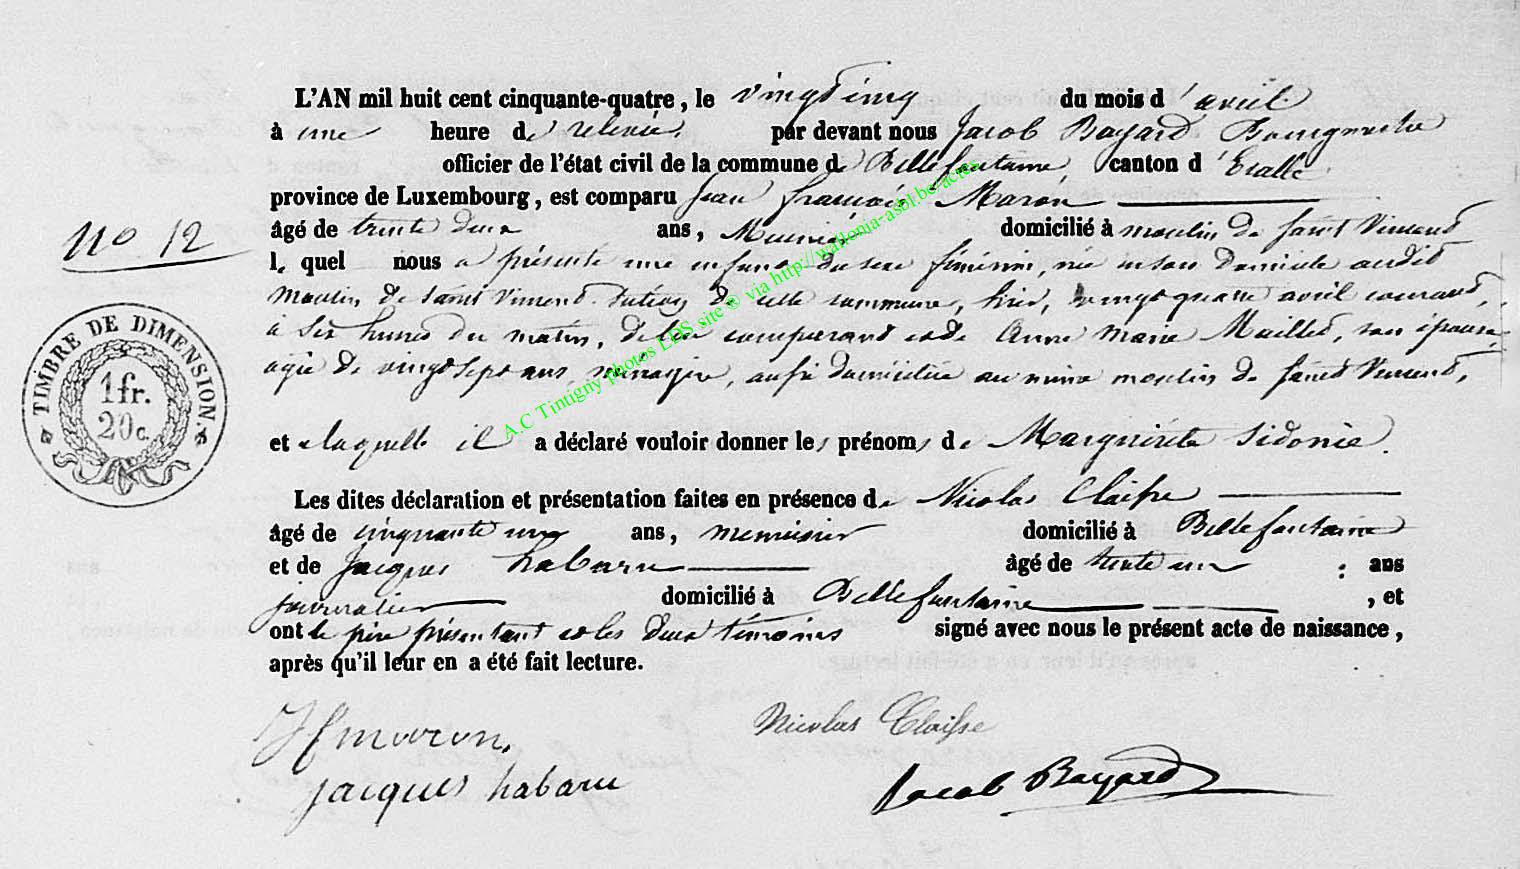 L'AN mil huit cent cinquante-quatre, le vingt cinq du mois d'avril
à une heure de relevée, par devant nous Jacob Bayard Bourgmestre
officier de l'état civil de la commune de Bellefontaine, canton d'Etalle
province de Luxembourg, est comparu Jean François Maron
âgé de trente deux ans, Meunier domicilié à moulin de Saint Vincent
N° 12
lequel nous a présenté une enfant du sexe féminin, née en son domicile audit
moulin de Saint Vincent de cette commune, hier, vingt quatre avril courant,
à six heures du matin, de lui comparant et de Anne Marie Maillet, son épouse,
agée de vingt sept ans, ménagère, aussi domiciliée au même moulin de Saint Vincent,
TIMBRE DE DIMENSION.
1 fr.
20 c.
et a laquelle il a déclaré vouloir donner les prénoms de Marguérite Sidonie.
Les dites déclaration et présentation faites en présence de Nicolas Claisse
âgé de cinquante un ans, menuisier domicilié à Bellefontaine
et de Jacques habaru âgé de trente un ans
journalier domicilié à Bellefontaine, et
ont le père présentant et les deux témoins signé avec nous le présent acte de naissance,
après qu'il leur en a été fait lecture.
Jf maron.
Nicolas Claisse
jacques habaru
Jacob Bayard
A.C Tintigny photos LDS site ® via http://wallonia-asbl.be/actes